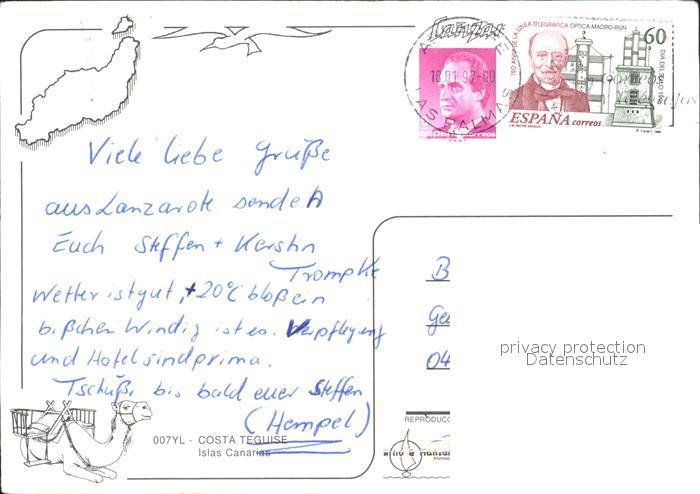 Lanzarote
150 AÑOS DE LA LINEA TELEGRAFICA OPTICA MADRID-IRUN
60
DIA DEL SELLO 1996
ESPAÑA correos
16.01.97
LAS PALMAS
Viele liebe Grüße
aus Lanzarote senden
Euch Steffen + Kerstin
Trompke
Wetter ist gut, +20°C bloß ein
bißchen Windig ist es. Verpflegung
und Hotel sind prima.
Tschüß, bis bald euer Steffen
(Hempel)
B
Ge
04
privacy protection
Datenschutz
007YL - COSTA TEGUISE
Islas Canarias
REPRODUCC